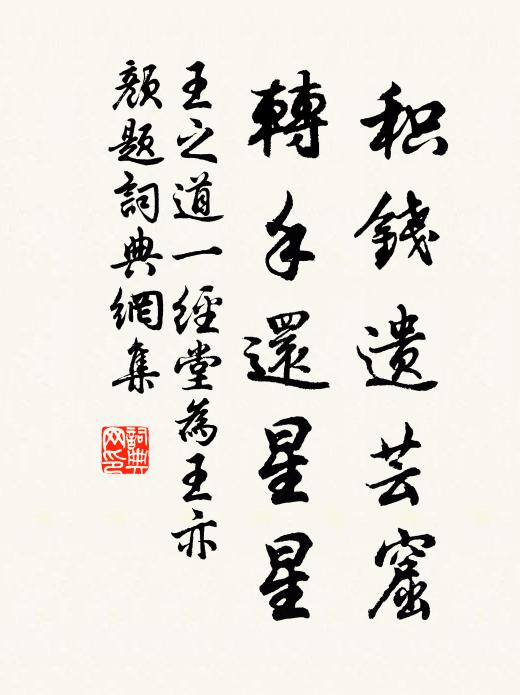 积錢遗芸窟
轉手還星星
王之道一經堂為王亦
顏题詞典網集
詞典
网印